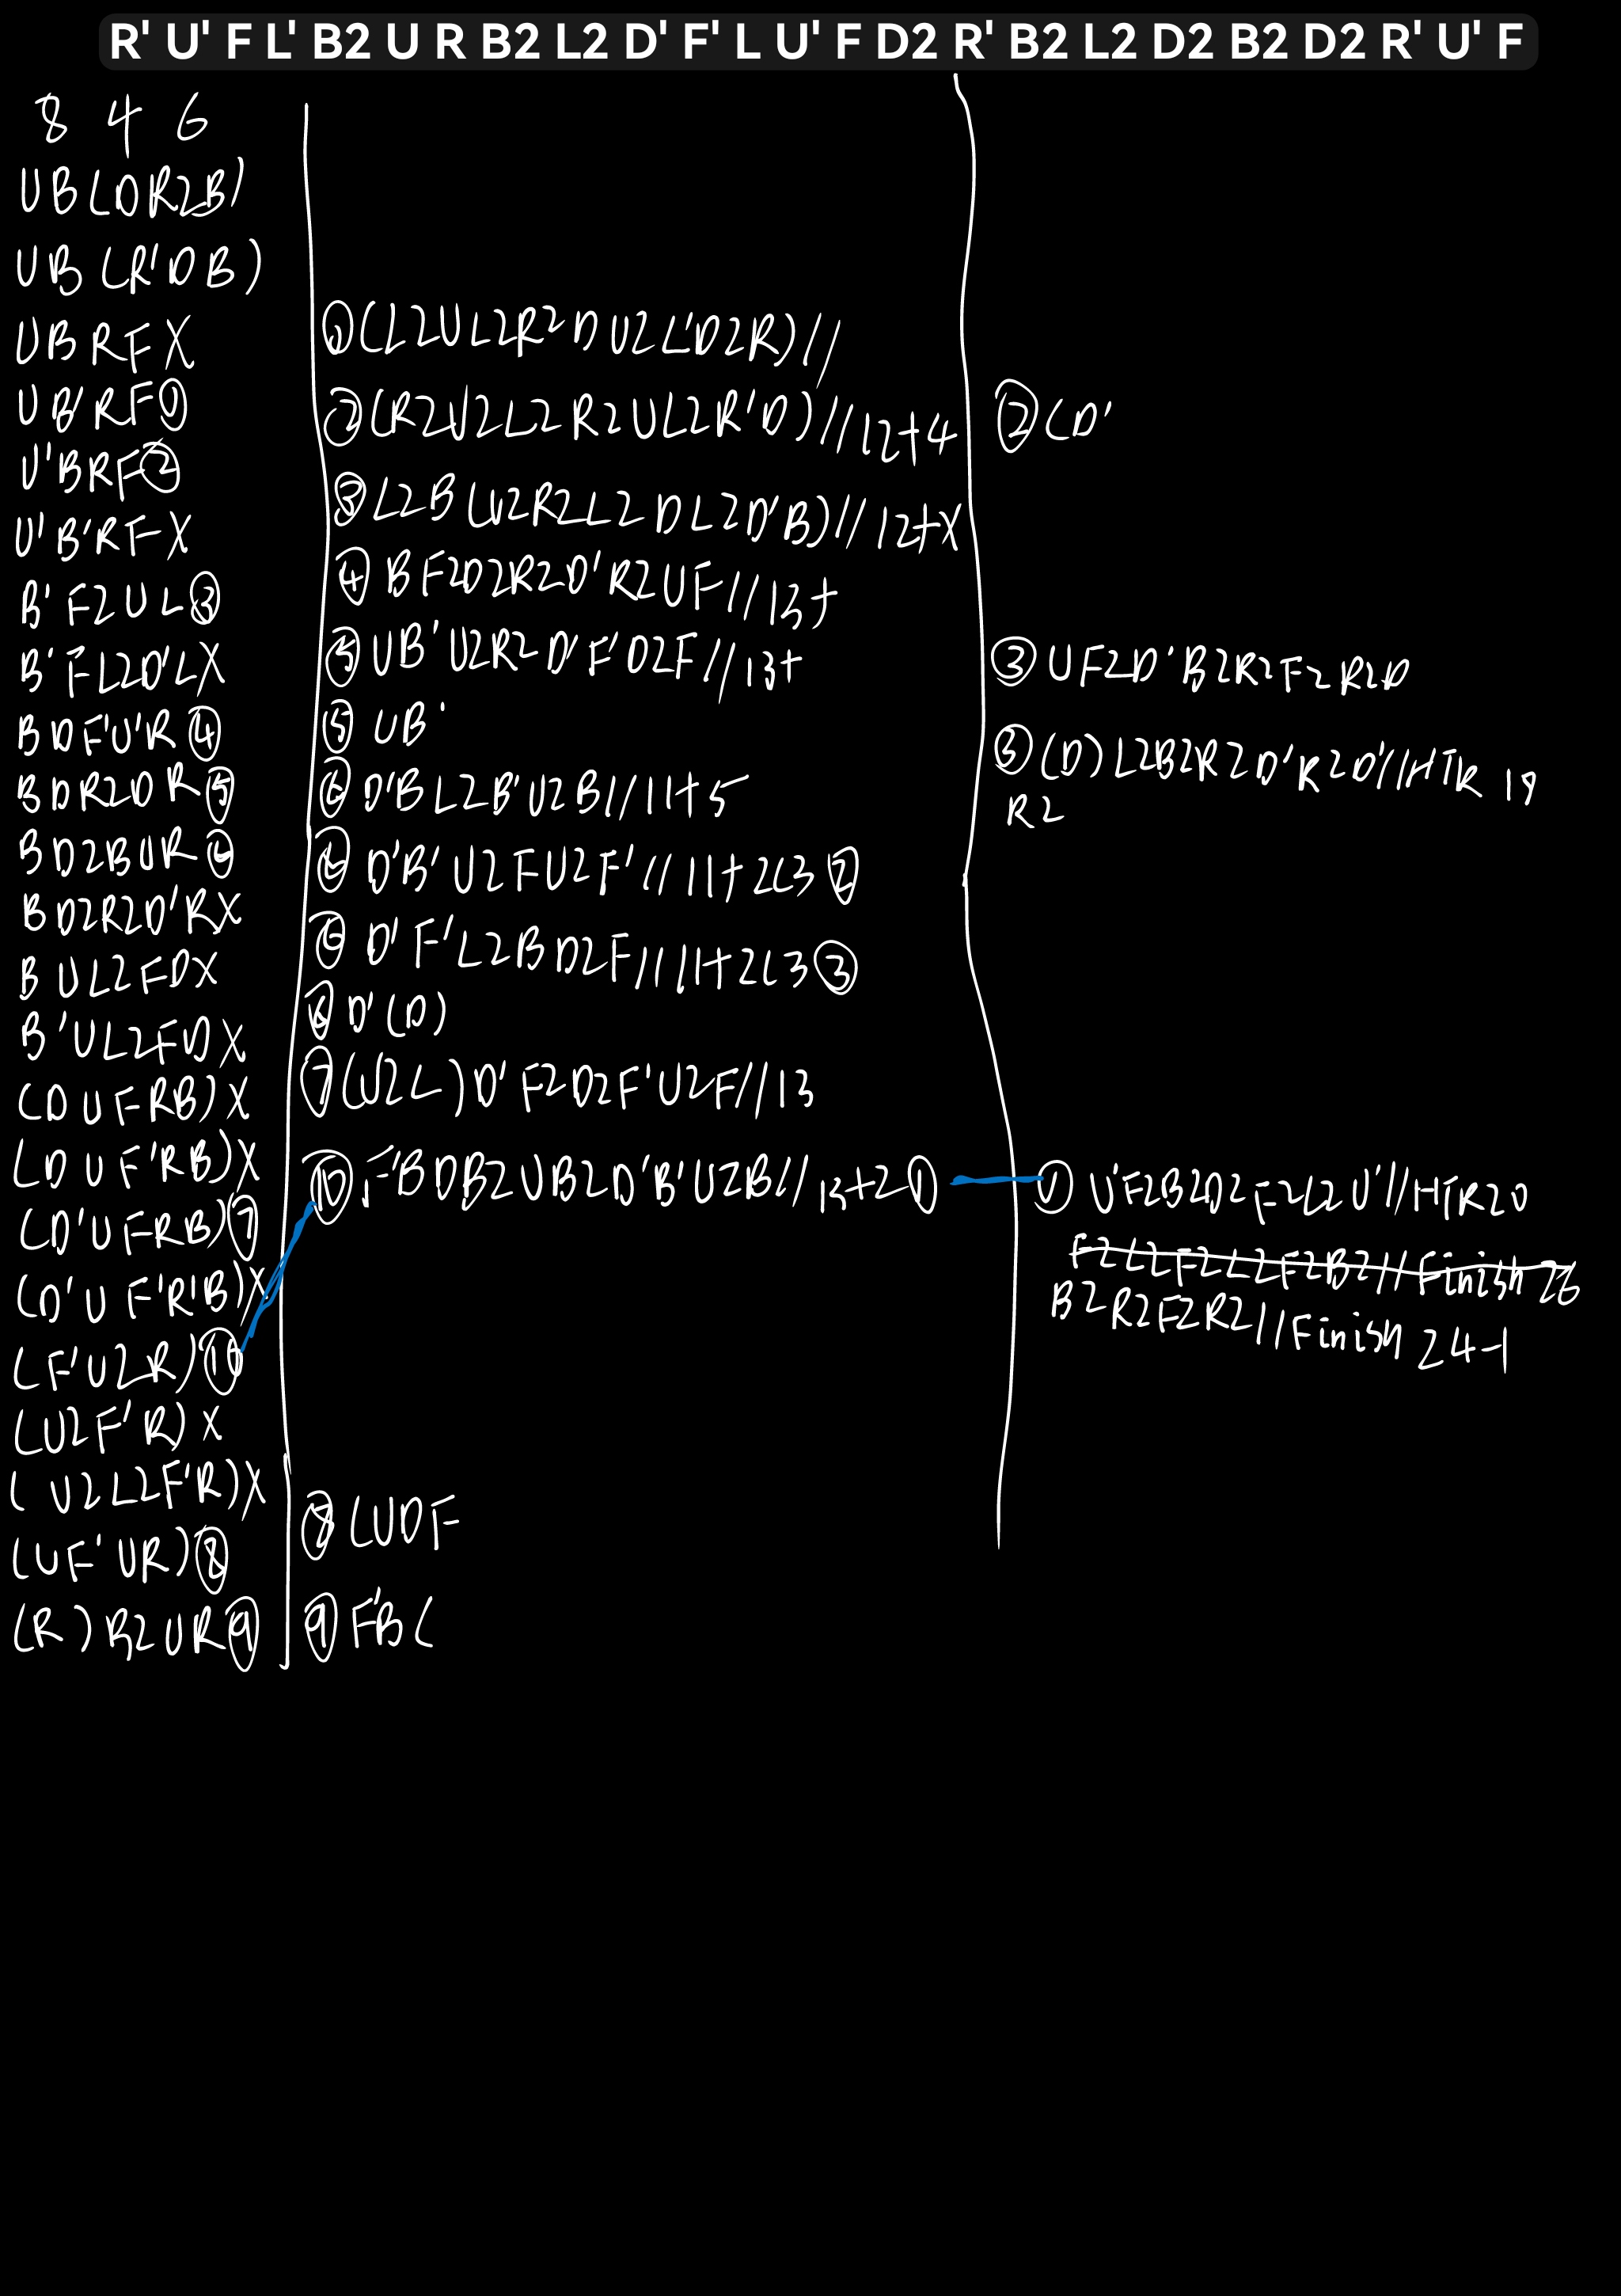 R' U' F L' B2 U R B2 L2 D' F' L U' F D2 R' B2 L2 D2 B2 D2 R' U' F
8 4 6
UB(DR2B)
UB(R'DB)
UBRFX
UB'RF①
U'BRF②
U'B'RFX
B'F2UL③
B'FL2D'LX
BDF'U'R④
BDR2DR⑤
BD2BUR⑥
BD2R2D'RX
BUL2FDX
B'UL2FDX
(DUFRB)X
(DUF'RB)X
(D'UFRB)⑦
(D'UF'R'B)X
(F'U2R)⑩
(U2F'R)X
(U2L2F'R)X
(UF'UR)⑧
(R)B2UR⑨
①(L2UL2R2DU2L'D2R)//
②(R2U2L2R2UL2R'D)//12+4
③L2B(U2R2L2DL2D'B)//12+X
④BF2D2R2D'R2UF//13+
⑤UB'U2R2D'F'D2F//13+
⑤UB'
⑥D'BL2B'U2B//11+5
⑥D'B'U2FU2F'//11+2C3②
⑥D'F'L2BD2F//11+2C3③
⑥D'(D)
⑦(U2L)D'F2D2F'U2F//13
⑩F'BDB2UB2D'B'U2B//13+2①
⑧(UDF
⑨F'B(
②(D'
③UF2D'B2R2F2R2D
③(D)L2B2R2D'R2D'//HTR 19
R2
①U'F2B2D2F2L2U'//HTR20
F2L2F2L2F2B2//Finish 26
B2R2F2R2//Finish 24-1